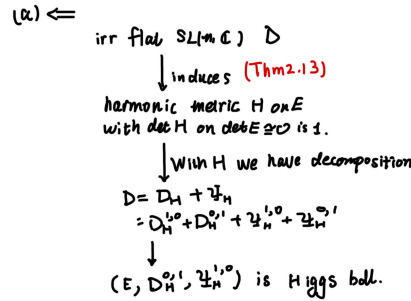 (a) ⇐
irr flat SL(n, ℂ) D
↓ induces (Thm2.13)
harmonic metric H on E
with det H on det E ≅ O is 1.
↓ With H we have decomposition
D = D_H + Ψ_H
= D_H^{1,0} + D_H^{0,1} + Ψ_H^{1,0} + Ψ_H^{0,1}
↓
(E, D_H^{0,1}, Ψ_H^{1,0}) is Higgs bdl.